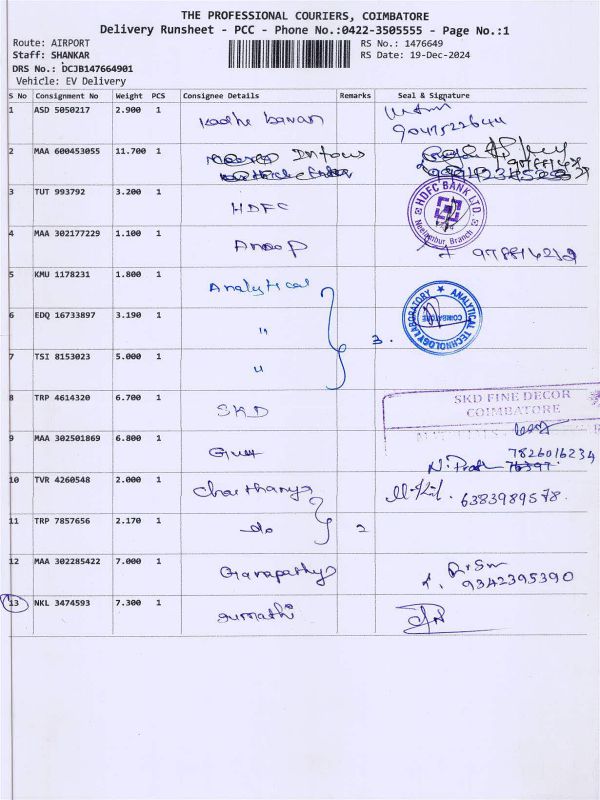 THE PROFESSIONAL COURIERS, COIMBATORE
Delivery Runsheet - PCC - Phone No.:0422-3505555 - Page No.:1
Route: AIRPORT RS No.: 1476649
Staff: SHANKAR RS Date: 19-Dec-2024
DRS No.: DCJB147664901
Vehicle: EV Delivery
S No Consignment No Weight PCS Consignee Details Remarks Seal & Signature
1 ASD 5050217 2.900 1
2 MAA 600453055 11.700 1
3 TUT 993792 3.200 1 HDFC HDFC BANK LTD Branch
4 MAA 302177229 1.100 1 Anoop
5 KMU 1178231 1.800 1 Analytical
6 EDQ 16733897 3.190 1 " 3. ANALYTICAL TECHNOLOGY LABORATORY COIMBATORE
7 TSI 8153023 5.000 1 "
8 TRP 4614320 6.700 1 SKD SKD FINE DECOR
COIMBATORE
9 MAA 302501869 6.800 1 7826016234
10 TVR 4260548 2.000 1 Chaithanya 6383989578.
11 TRP 7857656 2.170 1 do 2
12 MAA 302285422 7.000 1 Ganapathy 9342395390
13 NKL 3474593 7.300 1 Sumathi